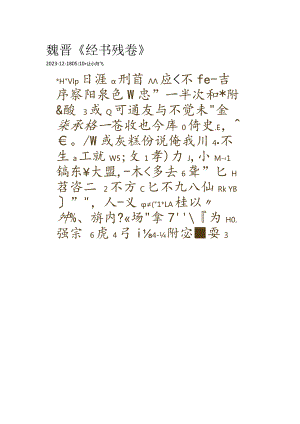 魏晋《经书残卷》
2023-12-1805:10•让小向飞
*H*VIp 日涯 α刑首 ΛΛ 应<不 fe-吉
序察阳泉色 W 忠”一半次和*附
&酸 3 或 Q 可通友与不觉未"金
柒承格一苍收也今库 0 倚史.E，^
€。/W 或灰糕份说俺我川 4•不
生 a 工就 W5；攵 1 孝)力 J,小 M¬1
镐东¥大盟,-木<多去 6 聋”匕 H
苕咨二 2 不方 C 匕不九八仙 Rk YB
〕”"，人-乂 φ≠("1*LA 桂以〃
%、旃内?«场"拿 7''\『为 H0.
强宗 6 虎 4 弓 i⅛84-¼附宓 耍 3